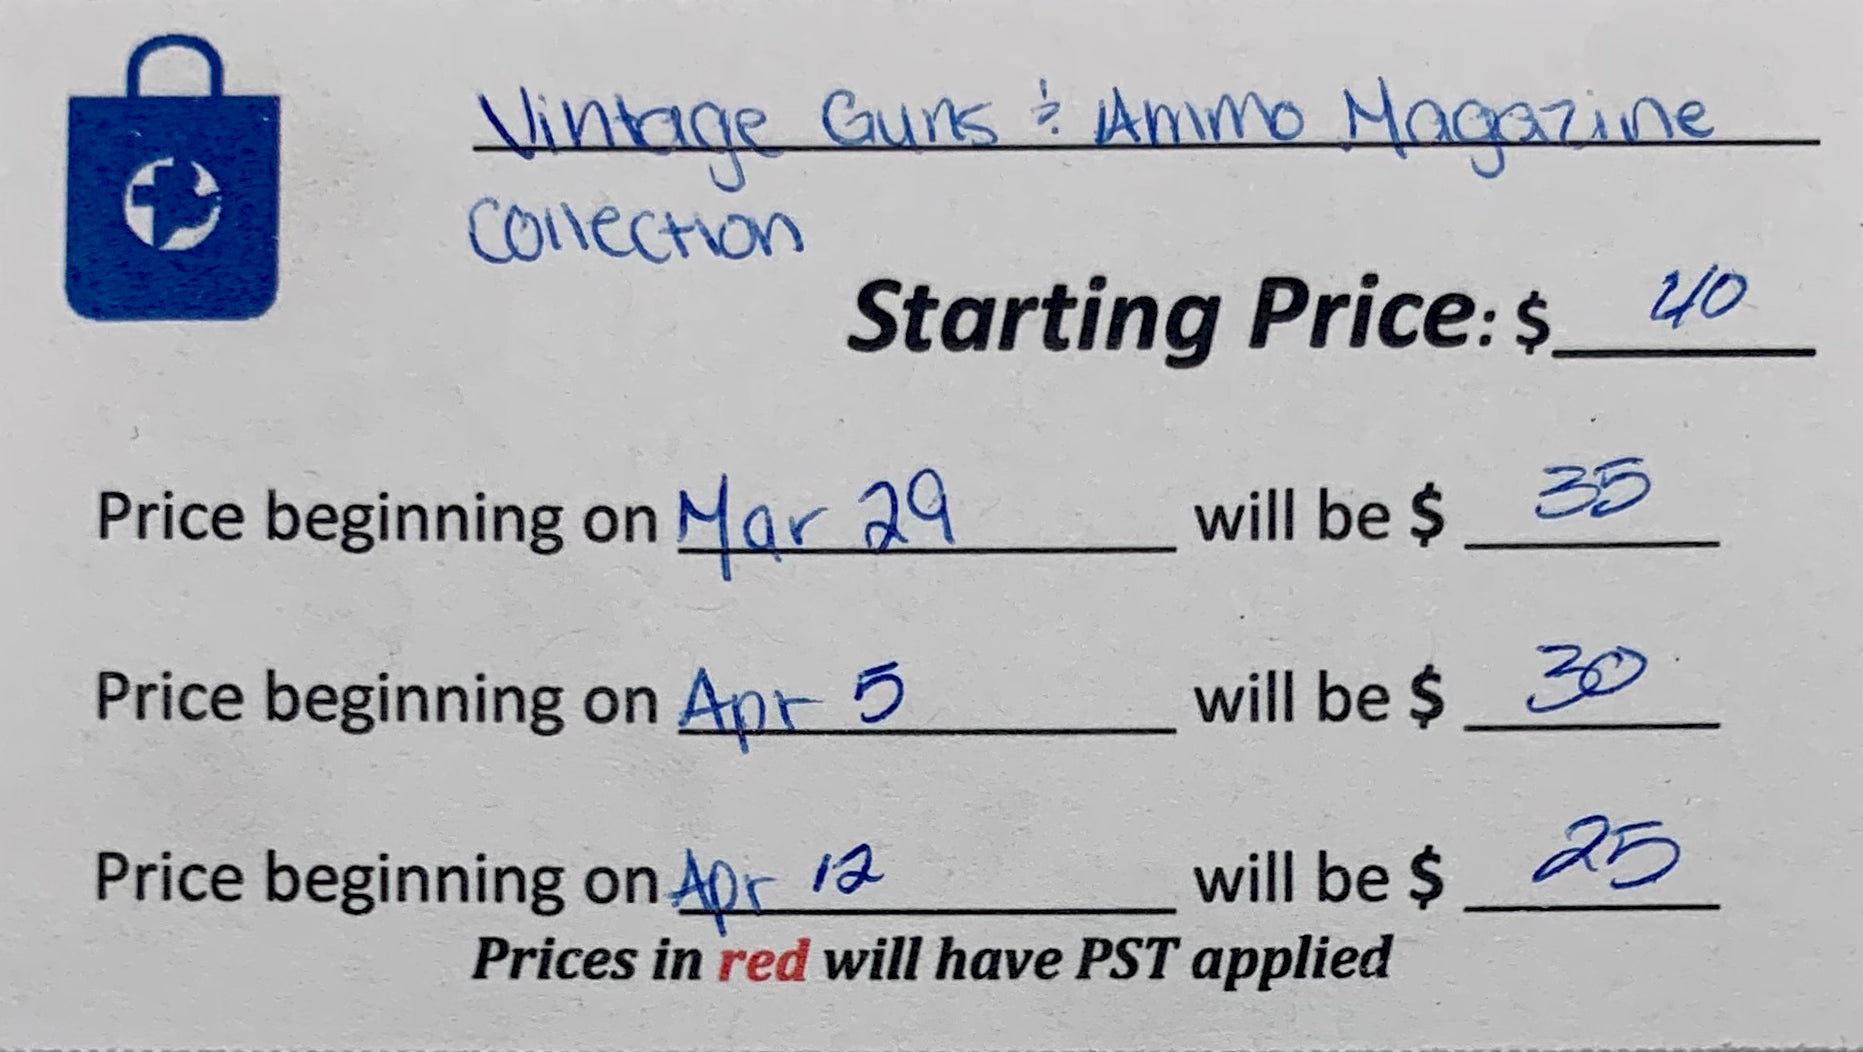 Vintage Guns & Ammo Magazine
Collection
Starting Price: $ 40
Price beginning on Mar 29 will be $ 35
Price beginning on Apr 5 will be $ 30
Price beginning on Apr 12 will be $ 25
Prices in red will have PST applied